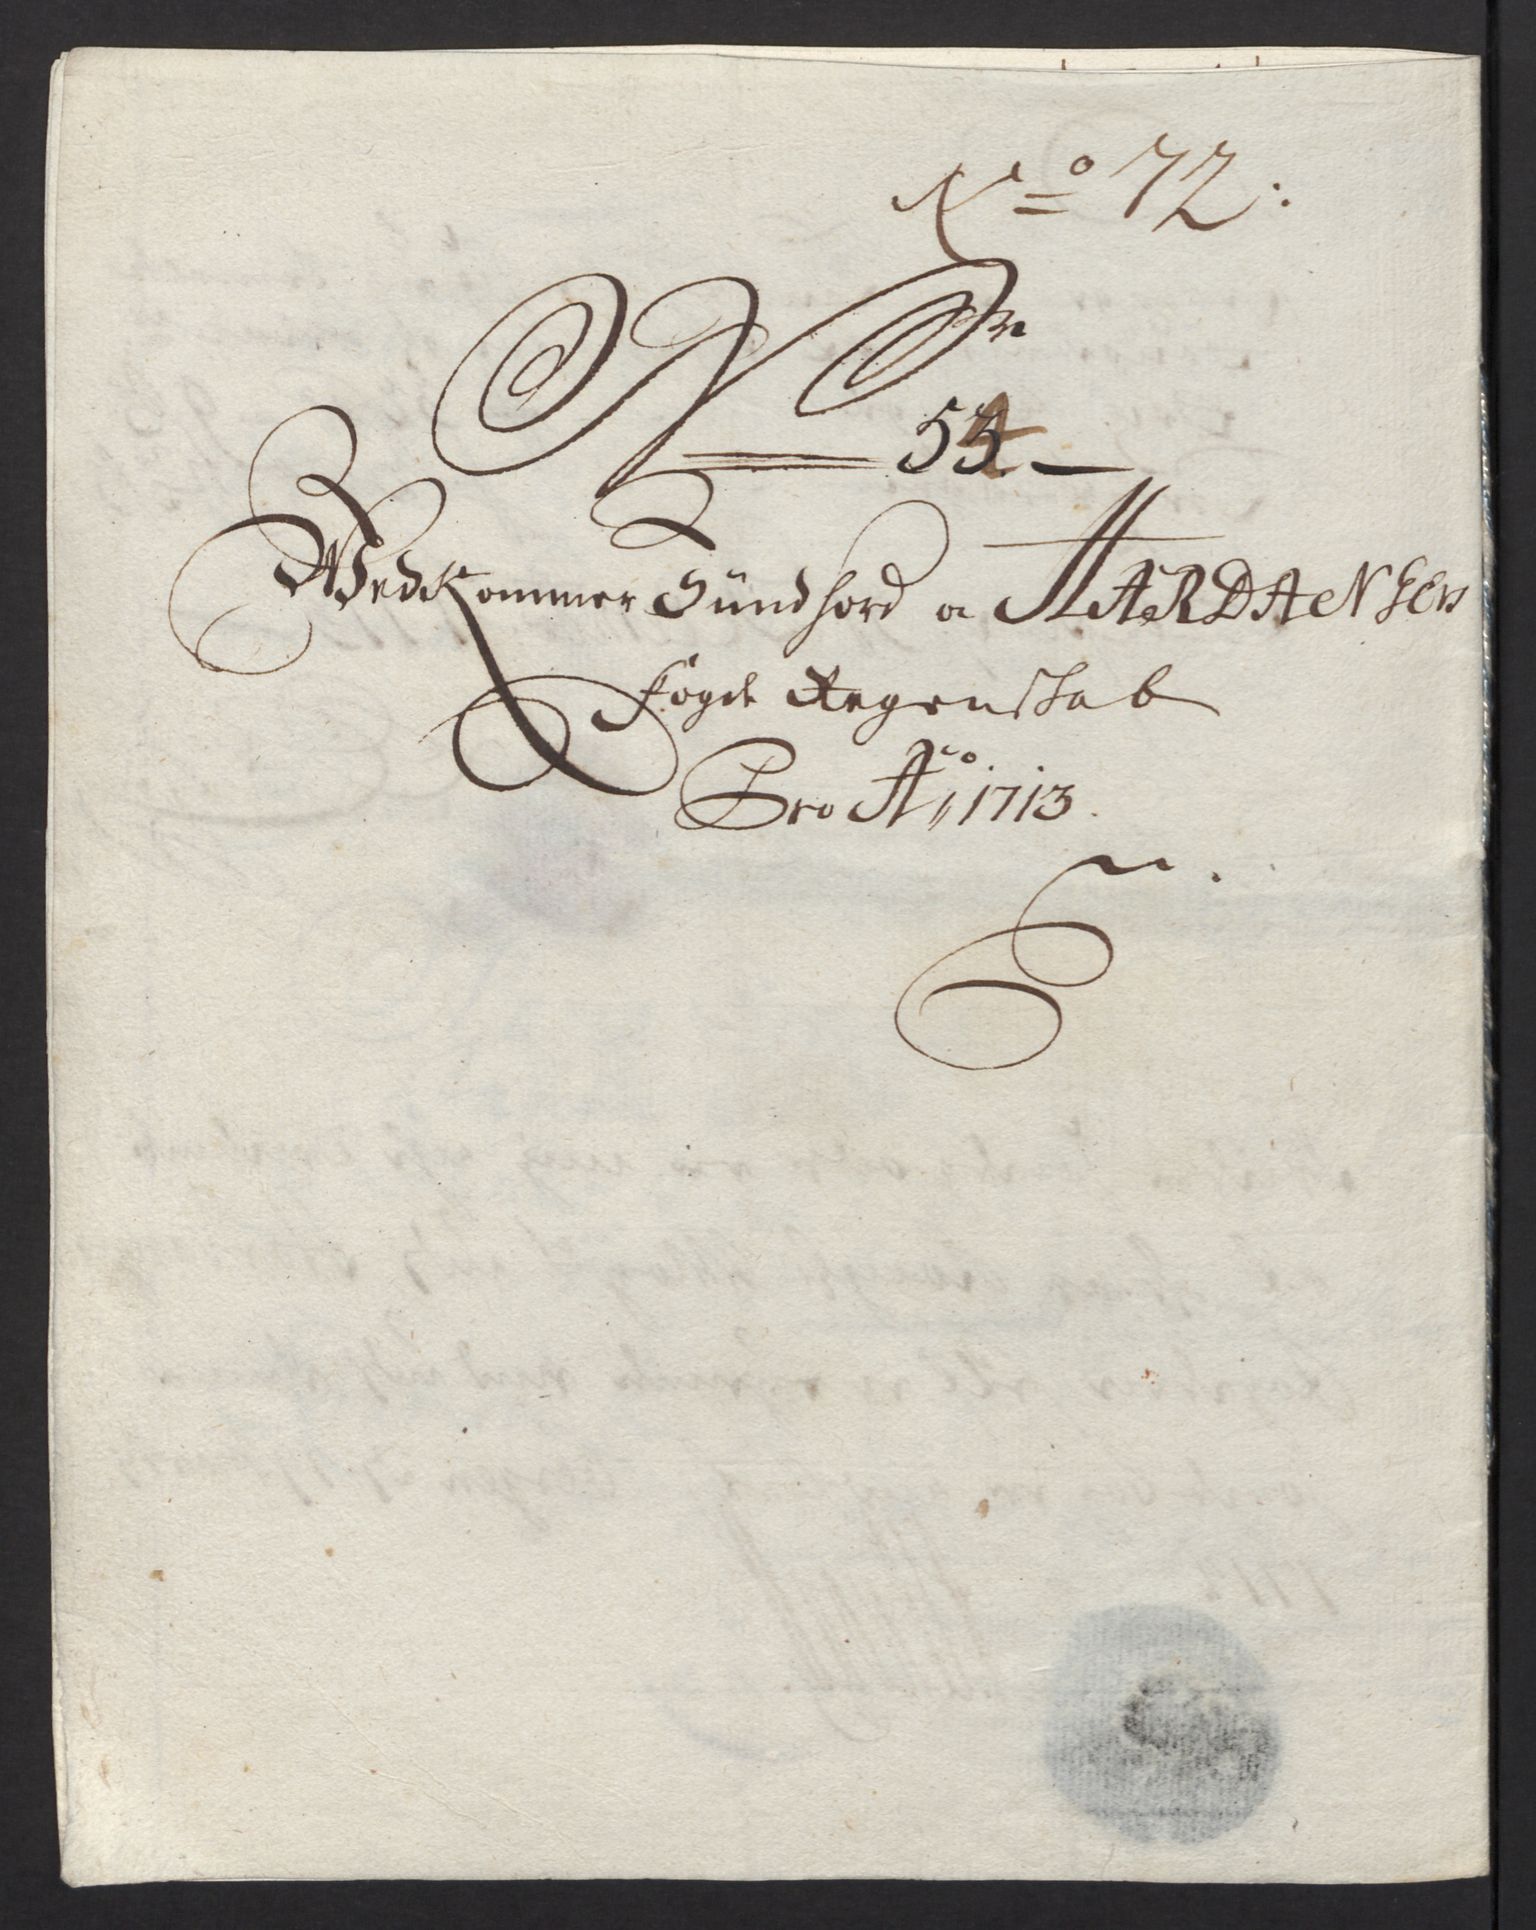 No 72:
Nr
54. —
Wedkommer Sundhord oc HARDANGERs
fogdt Regenskab
Pro Ao 1713.